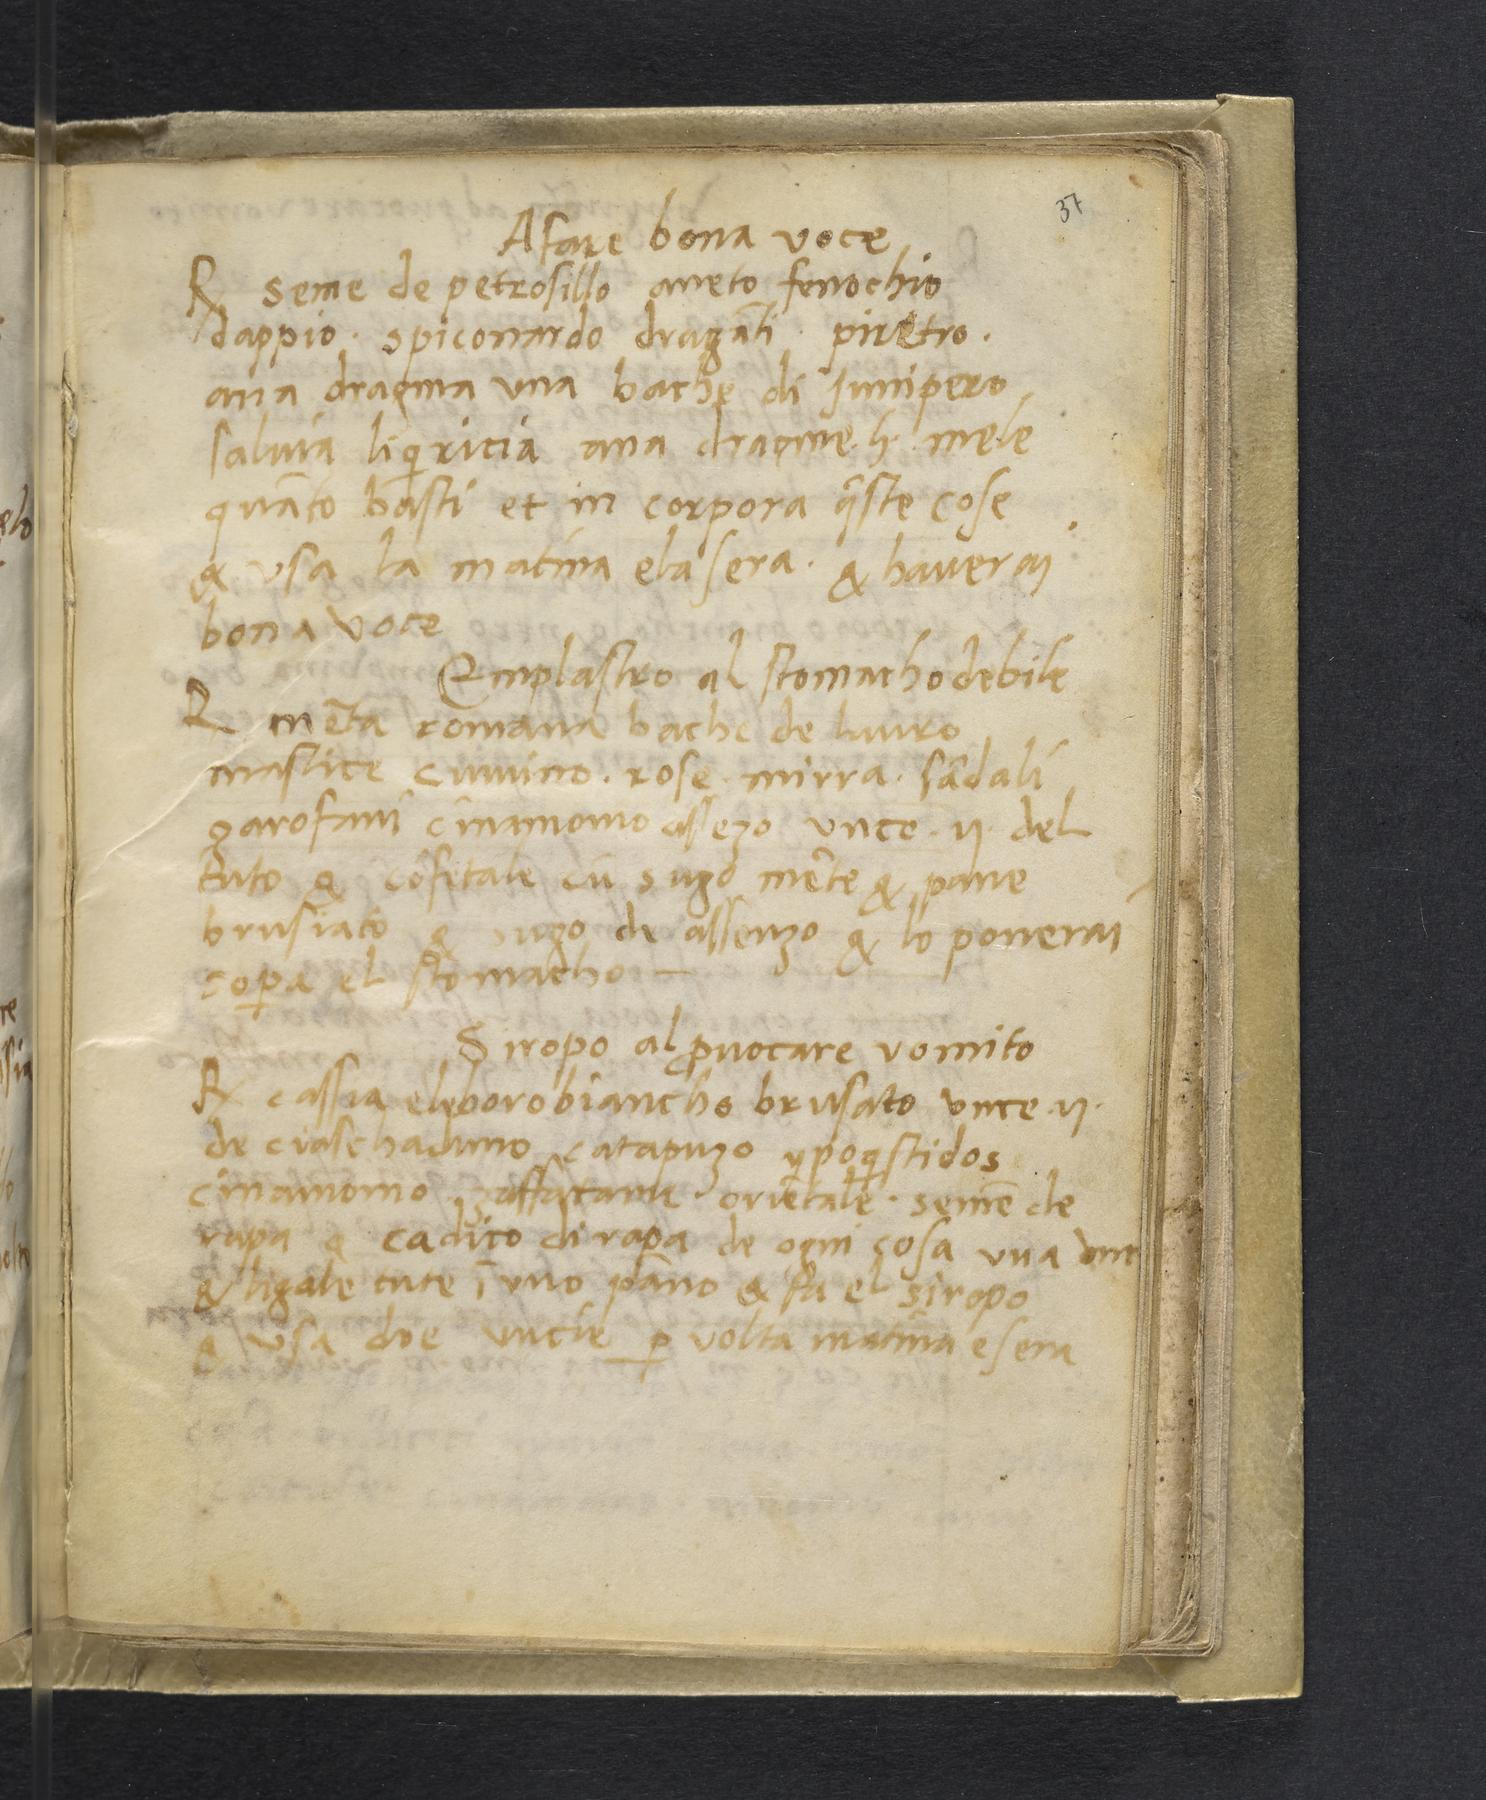 37
A fare bona voce
℞ seme de petrosillo aneto fenochio
dappio · spiconardo dragāti · piretro ·
ana dragma una bache di Junipero
salvia liq̄ricia ana dragme · ij · mele
quāto basti et in corpora q̄ste cose
& usa la matina ela sera · & haverai
bona voce
Emplastro al stomacho debile
℞ mēta romana bache de lauro
mastice cumino · rose · mirra · sādali
garofani cinamomo assezo unce · ij · del
tuto & cōfetale cū sugo mēte & pane
brusiato & sugo de assenzo & lo ponerai
sop̄a el stomacho —
Siropo al ꝓvocare vomito
℞ cassia eleboro biancho brusato unce · ij ·
de ciaschaduno catapuzo ypoq̄stidos
cinamomo oriētale · semē de
rapa & di rapa de ogni cosa una unc
& ligale tute ī uno pāno & fa el siropo
& usa doe uncie ꝑ volta matina e sera